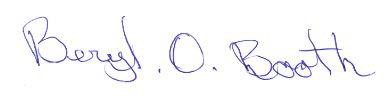 Beryl. O. Booth